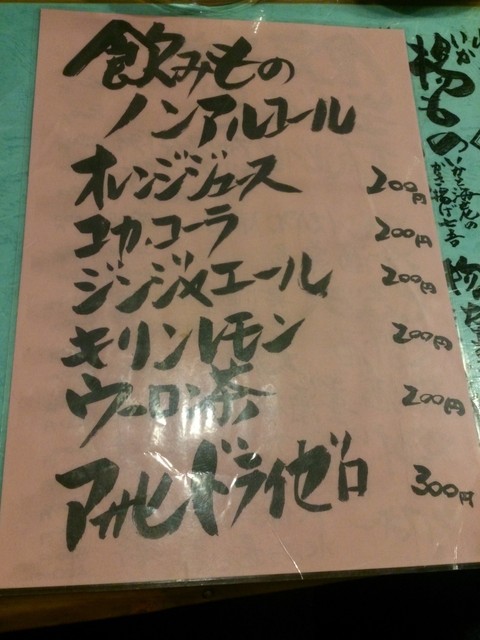 飲みもの
ノンアルコール
オレンジジュース 200円
コカ.コーラ 200円
ジンジャエール 200円
キリンレモン 200円
ウーロン茶 200円
アサヒドライゼロ 300円
揚もの